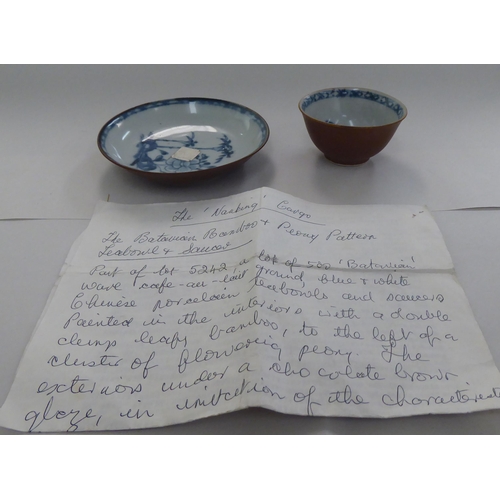 The 'Nanking' Cargo
The Batavian Bamboo & Peony Pattern
Teabowl & Saucer
Part of lot 5242, a lot of 500 'Batavian'
ware cafe-au-lait ground, blue & white
Chinese porcelain teabowls and saucers
Painted in the interiors with a double
clump leafy bamboo, to the left of a
cluster of flowering peony. The
exteriors under a chocolate brown
glaze, in imitation of the characteristic